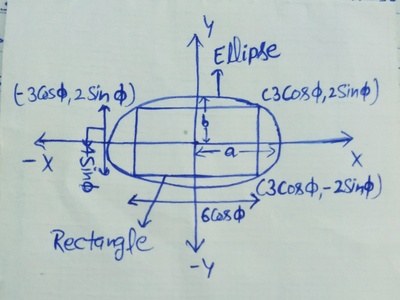 Y
Ellipse
(-3Cosϕ, 2Sinϕ)
(3Cosϕ, 2Sinϕ)
b
a
-X
X
4Sinϕ
(3Cosϕ, -2Sinϕ)
6Cosϕ
Rectangle
-Y